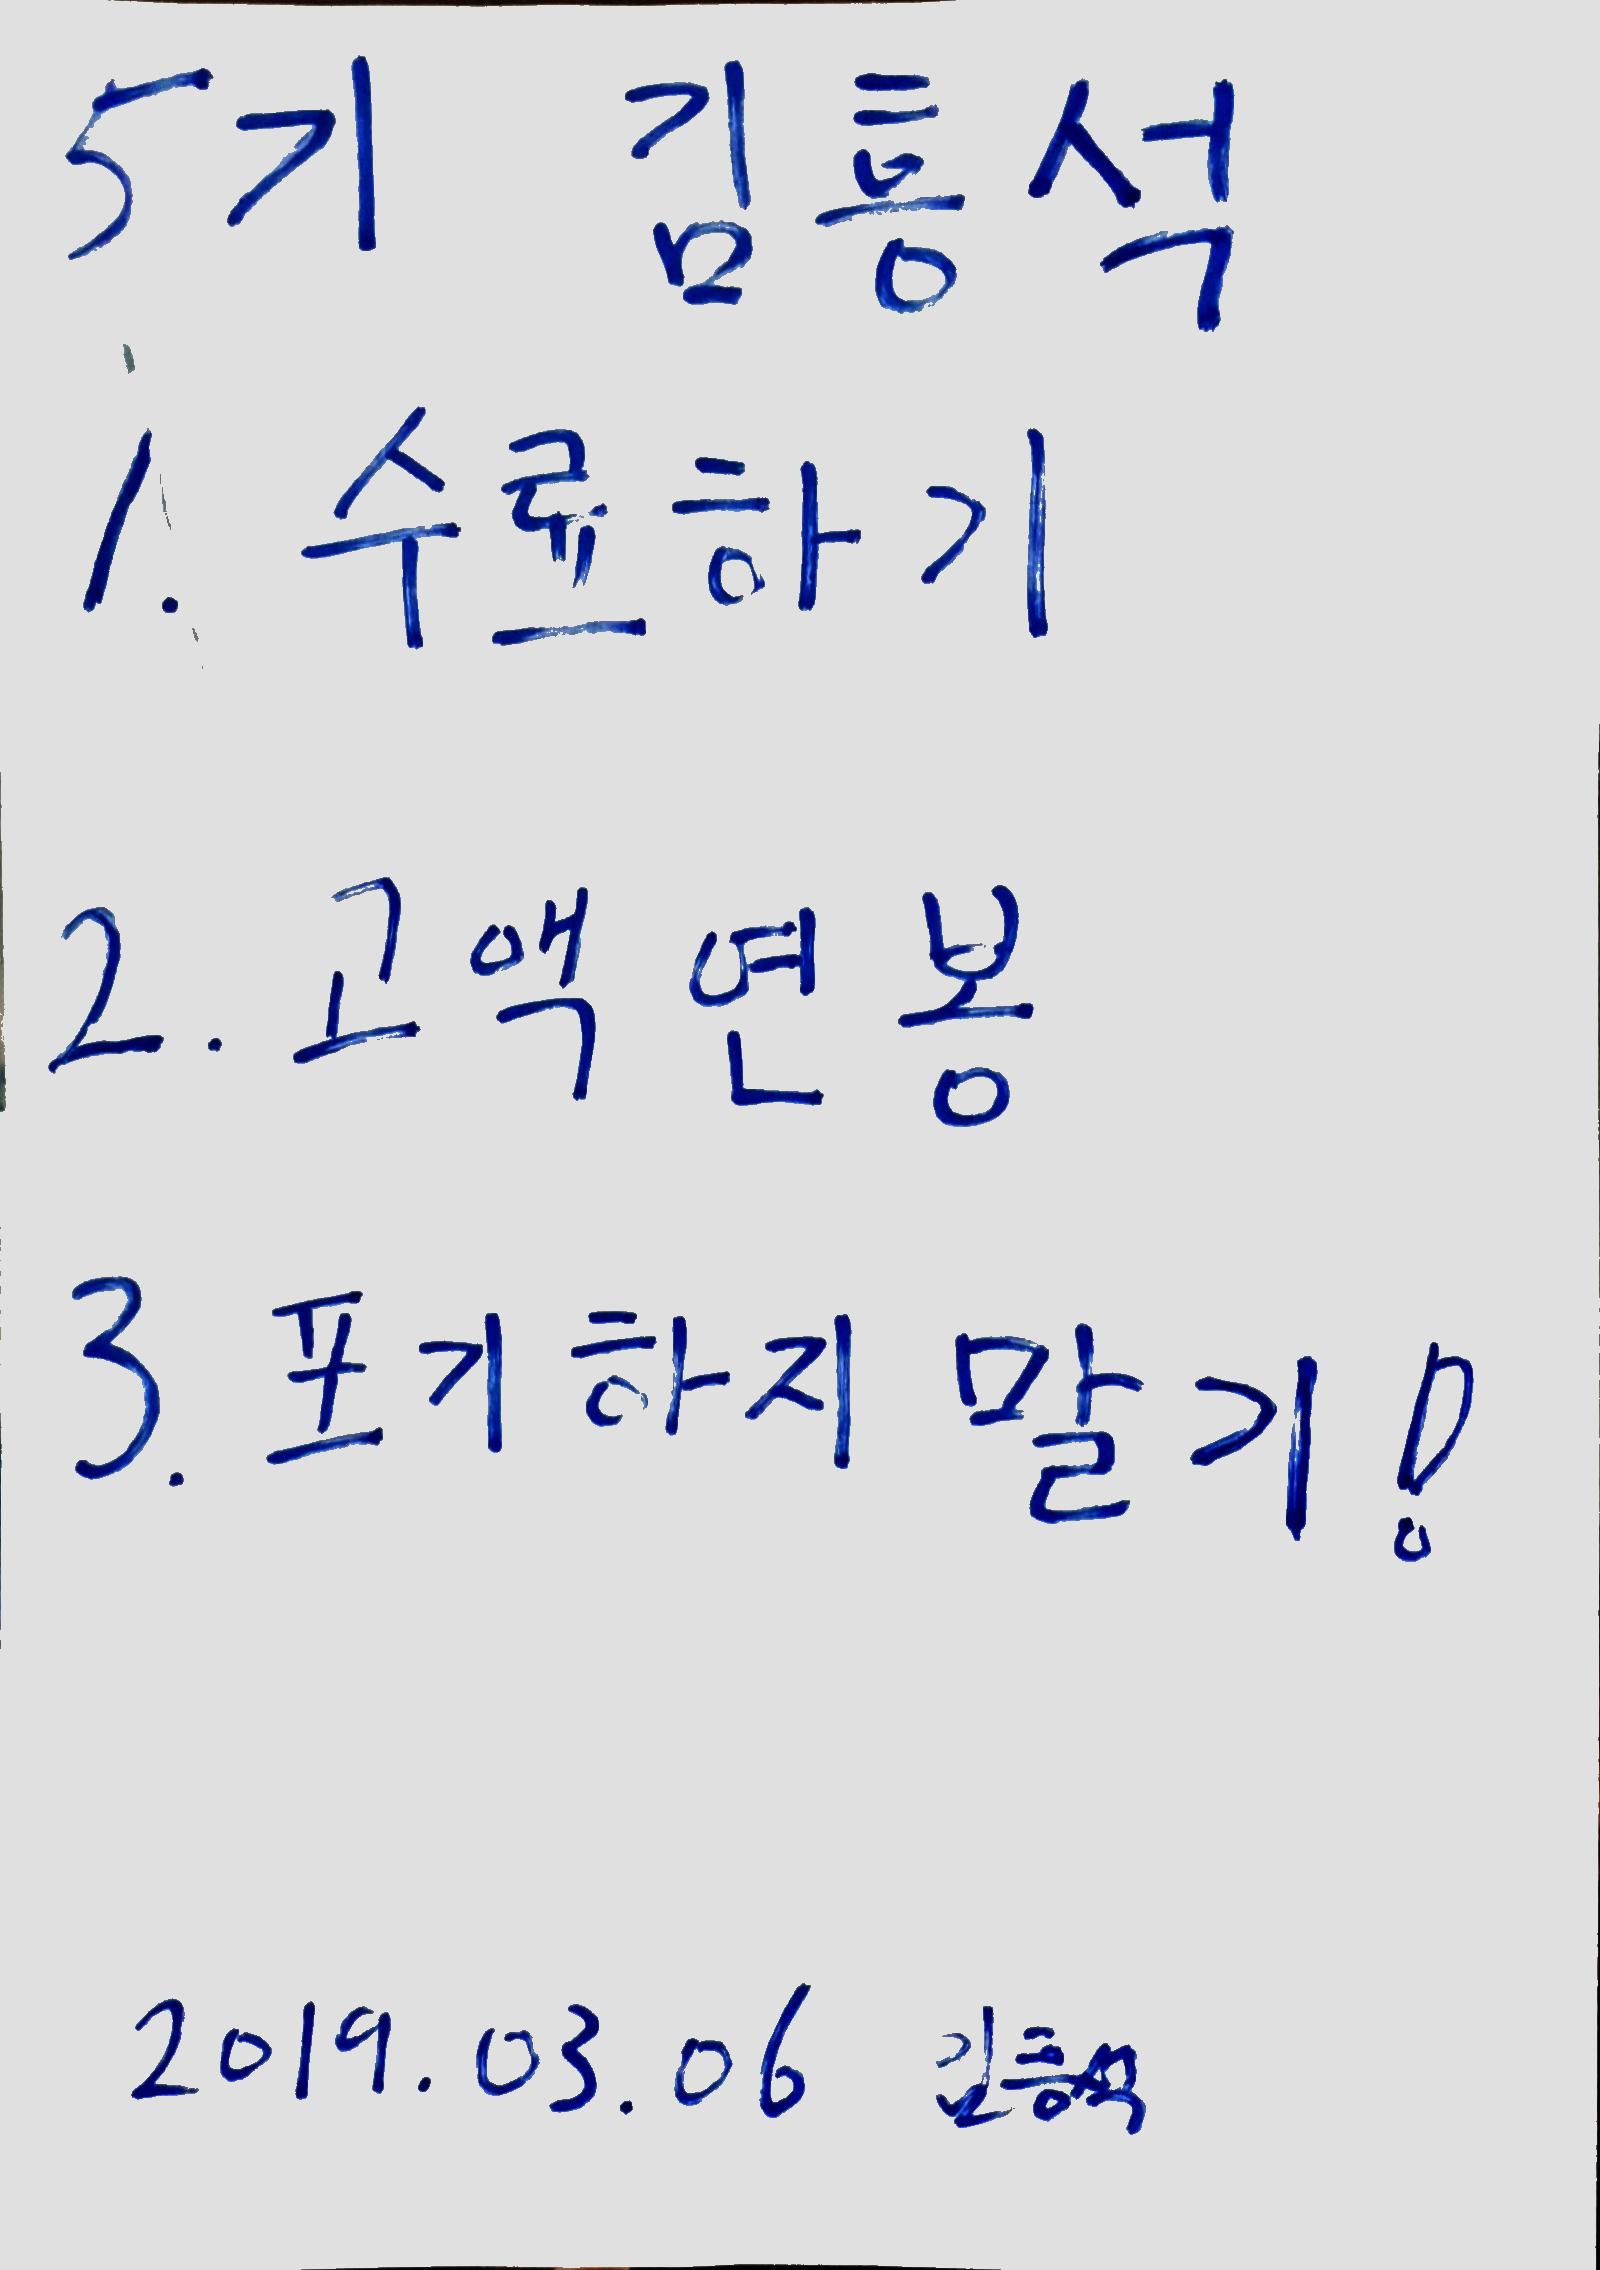 5기 김흥석
1. 수료하기
2. 고액연봉
3. 포기하지 말기!
2019.03.06 김흥석